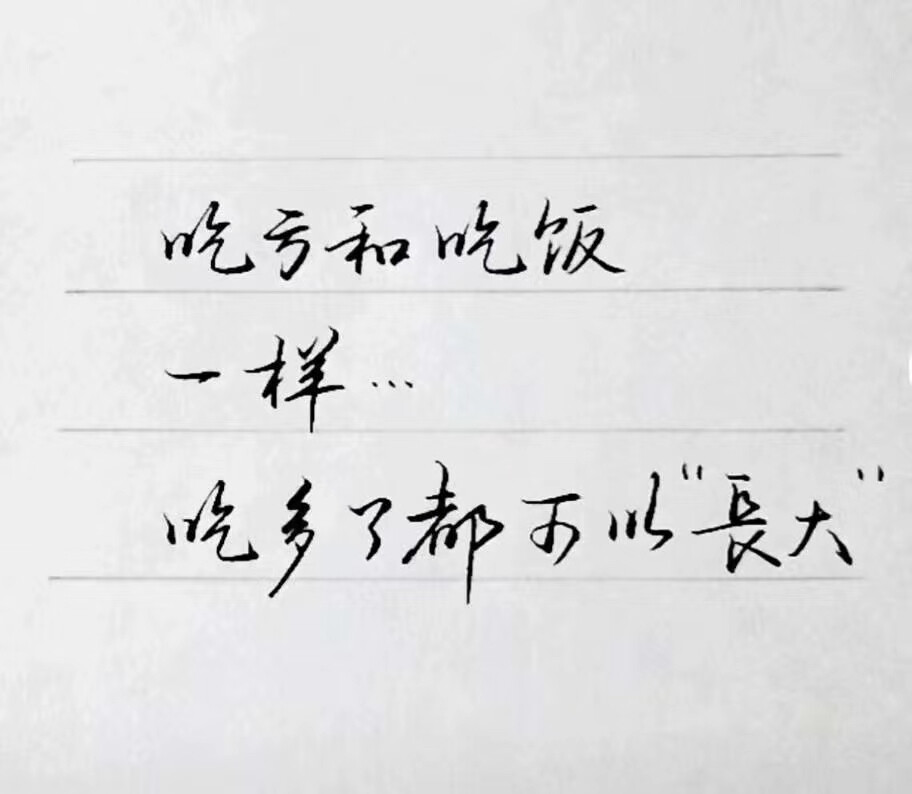 吃亏和吃饭
一样…
吃多了都可以"長大"